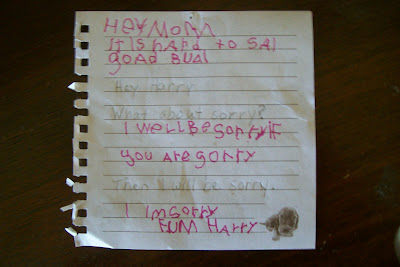 HEY MOM
It IS hard to SAI
goad BUAI
Hey Harry
What about sorry?
I WELL BE SorrY IF
You Are Sorry
Then I will be sorry.
I Im Sorry
FUM Harry